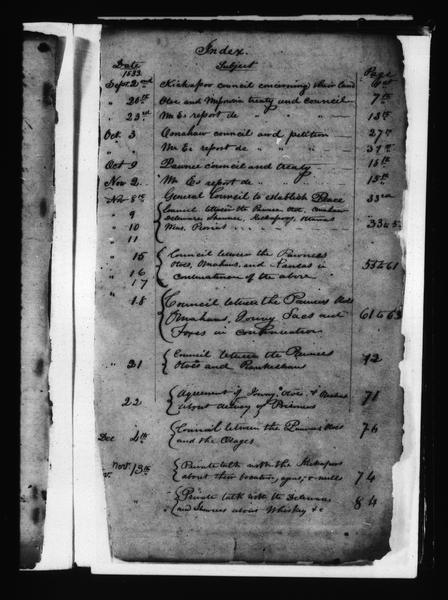 Index.
Date Subject Page
1833
Sept. 2nd Kickapoo council concerning their land
" 20th Otoe and Missouria treaty and council 7th
" 23rd Mr Es report do " " 15th
Oct 3 Omahaw council and petition 27th
" Mr Es report do " "
Oct 9 Pawnee council and treaty 15th
Nov 2 Mr Es report do " " 15th
Nov 8th General Council to establish Peace 33rd
" 9 Council between the Pawnee Otoe, Omahaw
" 10 Delaware, Shawnee, Kickapoo, Ottawas
" 11
" 15 Council between the Pawnees
" 16 Otoes, Omahaws, and Kansas in 55 to 61
" 17 continuation of the above
" 18 Council between the Pawnees Otoes
Omahaws, Ioway Sacs and 61 to 63
Foxes in continuation
" 21 Council between the Pawnees 72
Otoes and
" 22 Agreement of Ioway, Otoe, &
about delivery of Prisoners 71
Dec 4th Council between the Pawnees Otoes 76
and the Osages
Nov. 13th Private talk with the Kickapoos
about their location, agent, & mills 74
" Private talk with the Delawares 84
and Shawnees about Whiskey &c